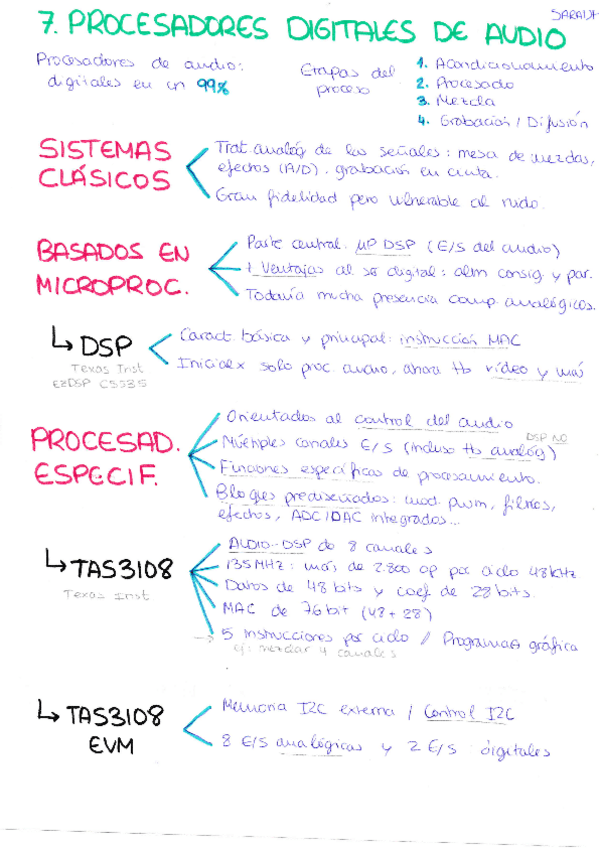 SARAIJT
7. PROCESADORES DIGITALES DE AUDIO
Procesadores de audio:
digitales en un 99%
Etapas del
proceso
1. Acondicionamiento
2. Procesado
3. Mezcla
4. Grabación / Difusión
SISTEMAS
CLÁSICOS
Trat. analóg de las señales: mesa de mezclas,
efectos (A/D). grabación en cinta.
Gran fidelidad pero vulnerable al ruido.
BASADOS EN
MICROPROC.
Parte central. μP DSP (E/S del audio)
+ Ventajas al ser digital: alm consig. y par.
Todavía mucha presencia comp. analógicos.
↳ DSP
Texas Inst
EZDSP C5535
Caract. básica y principal: instrucción MAC
Inicialx solo proc audio, ahora tb vídeo y más
PROCESAD.
ESPECIF.
Orientados al control del audio
DSP NO
Múltiples canales E/S (incluso tb analóg)
Funciones específicas de procesamiento.
Bloques prediseñados: mod. pwm, filtros,
efectos, ADC/DAC integrados...
↳ TAS3108
Texas Inst
AUDIO-DSP de 8 canales
135MHz: más de 2.800 op por ciclo 48kHz
Datos de 48 bits y coef. de 28 bits.
MAC de 76 bit (48+28)
→ 5 instrucciones por ciclo / Programac gráfica
ej: mezclar 4 canales
↳ TAS3108
EVM
Memoria I2C externa / Control I2C
8 E/S analógicas y 2 E/S digitales